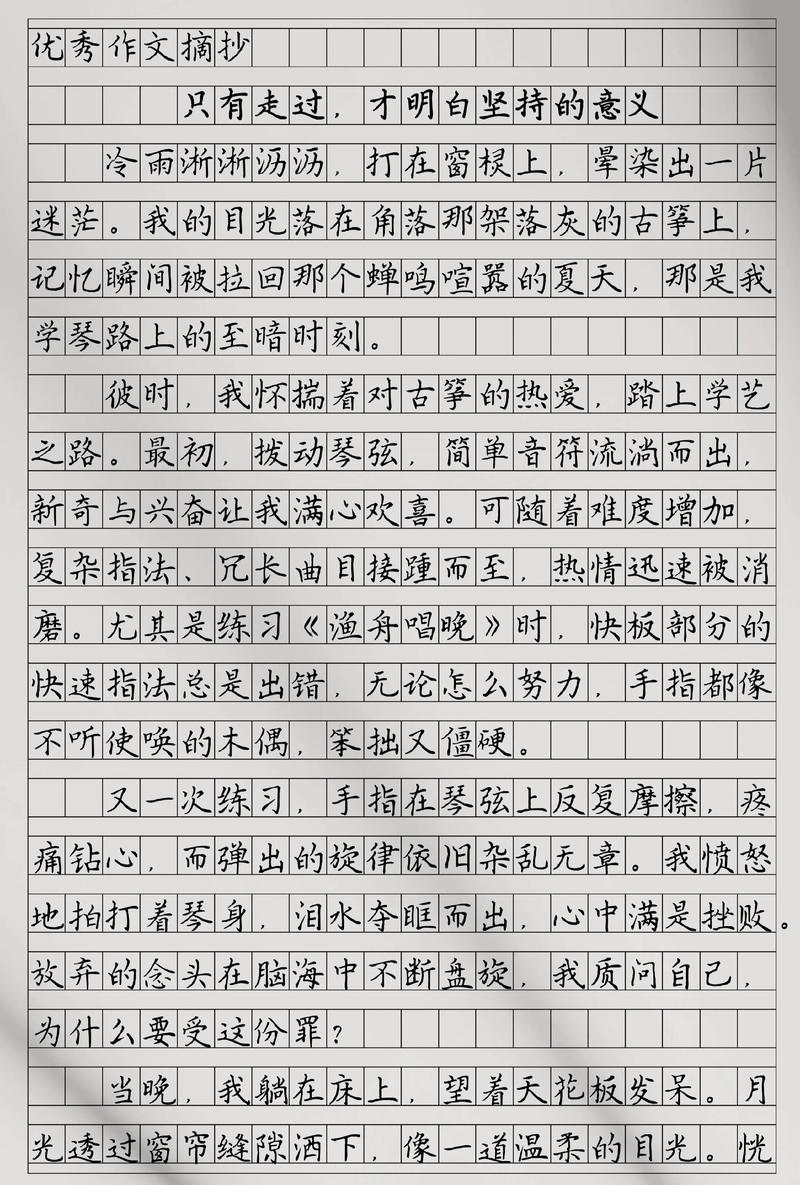 优秀作文摘抄
只有走过，才明白坚持的意义
冷雨淅淅沥沥，打在窗棂上，晕染出一片
迷茫。我的目光落在角落那架落灰的古筝上，
记忆瞬间被拉回那个蝉鸣喧嚣的夏天，那是我
学琴路上的至暗时刻。
彼时，我怀揣着对古筝的热爱，踏上学艺
之路。最初，拨动琴弦，简单音符流淌而出，
新奇与兴奋让我满心欢喜。可随着难度增加，
复杂指法、冗长曲目接踵而至，热情迅速被消
磨。尤其是练习《渔舟唱晚》时，快板部分的
快速指法总是出错，无论怎么努力，手指都像
不听使唤的木偶，笨拙又僵硬。
又一次练习，手指在琴弦上反复摩擦，疼
痛钻心，而弹出的旋律依旧杂乱无章。我愤怒
地拍打着琴身，泪水夺眶而出，心中满是挫败。
放弃的念头在脑海中不断盘旋，我质问自己，
为什么要受这份罪？
当晚，我躺在床上，望着天花板发呆。月
光透过窗帘缝隙洒下，像一道温柔的目光。恍